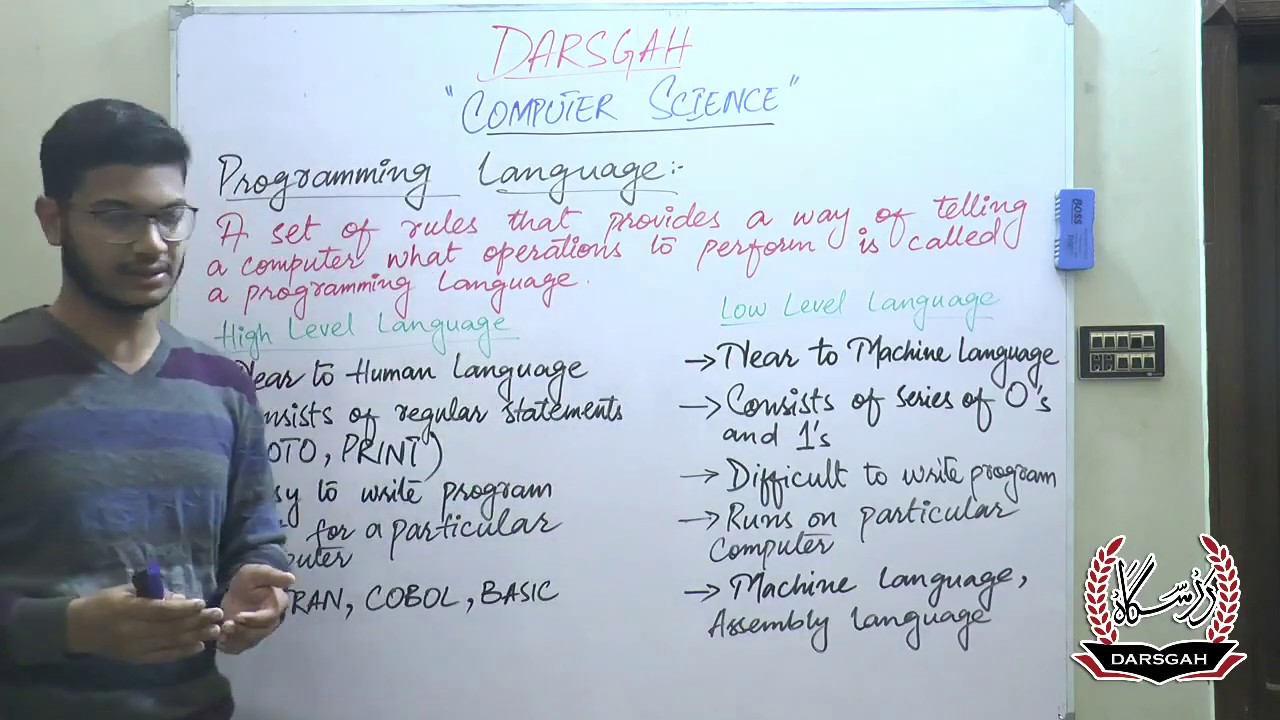 DARSGAH
"COMPUTER SCIENCE"
Programming Language:-
A set of rules that provides a way of telling
a computer what operations to perform is called
a programming Language.
High Level Language
Near to Human Language
nsists of regular statements
OTO, PRINT)
sy to write program
for a particular
puter
TRAN, COBOL, BASIC
Low Level Language
→ Near to Machine Language
→ Consists of series of 0's
and 1's
→ Difficult to write program
→ Runs on particular
Computer
→ Machine Language,
Assembly Language
BOSS
درسگاہ
DARSGAH